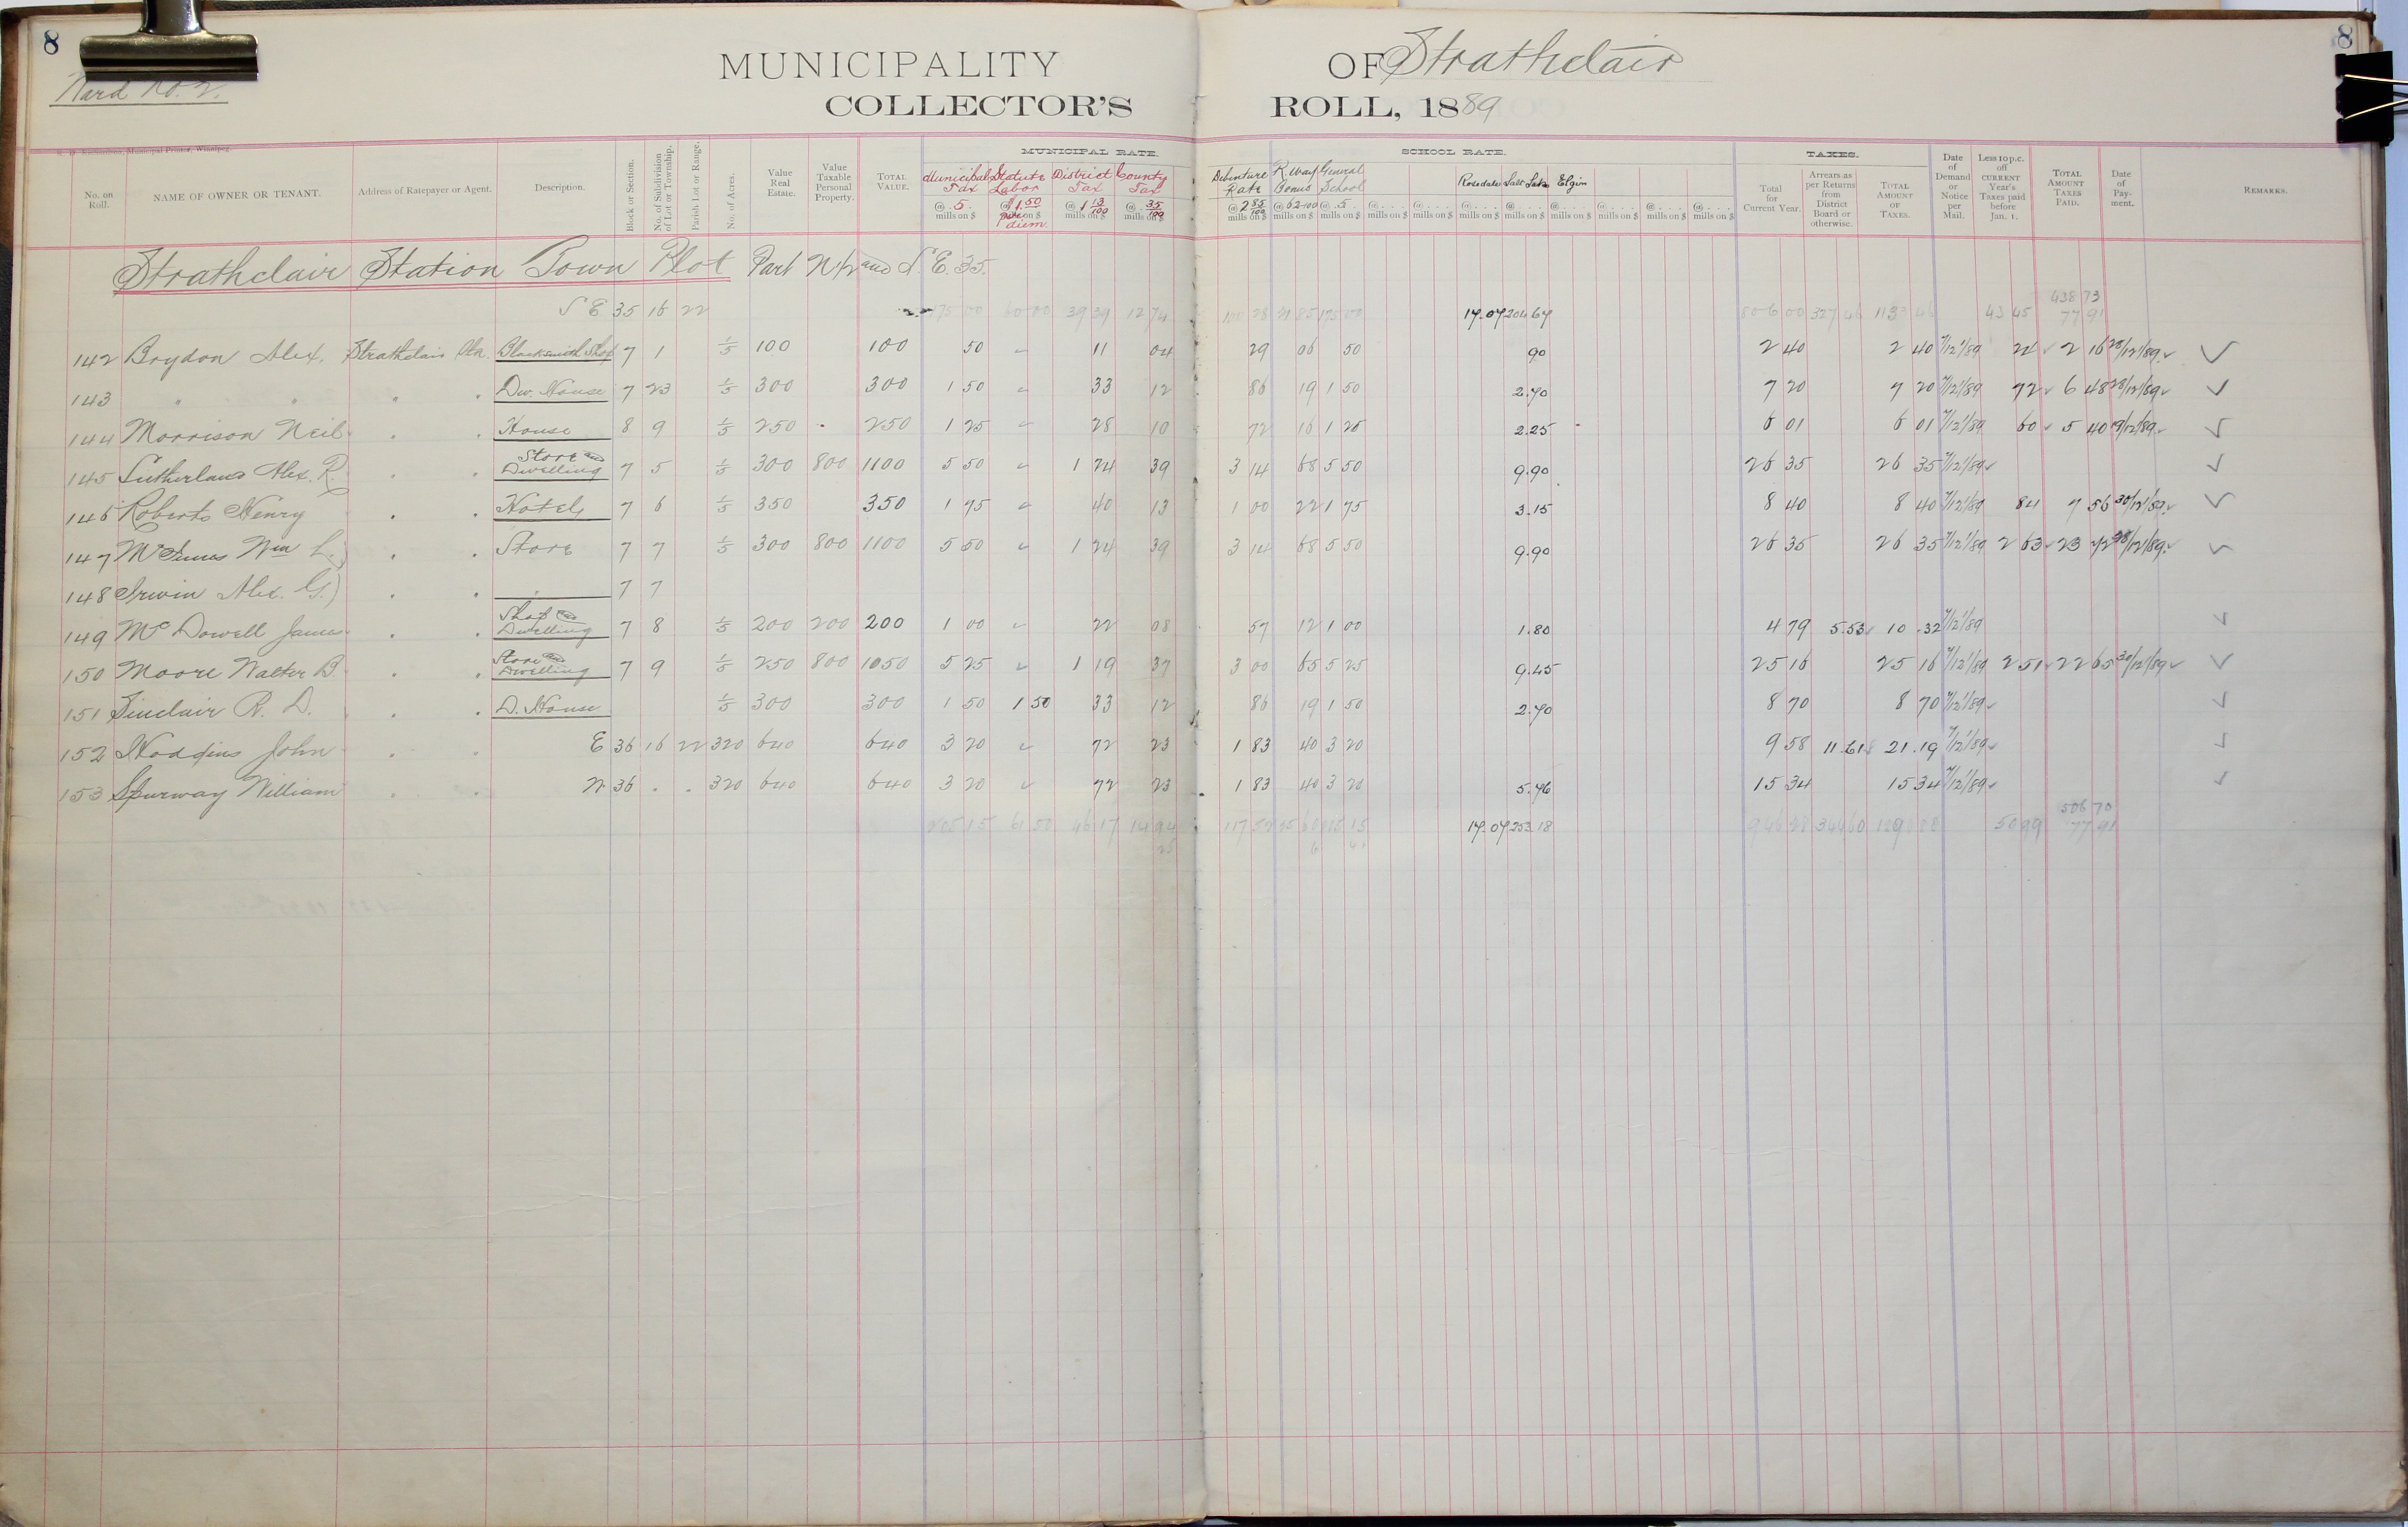 8
8
Ward No. 2.
MUNICIPALITY OF Strathclair
COLLECTOR'S ROLL, 1889
MUNICIPAL RATE. SCHOOL RATE. TAXES.
No. on Roll. NAME OF OWNER OR TENANT. Address of Ratepayer or Agent. Description. Block or Section. No. of Subdivision of Lot or Township. Parish Lot or Range. No. of Acres. Value Real Estate. Value Taxable Personal Property. TOTAL VALUE. Municipal Tax @ 5 mills on $ Statute Labor @ $1.50 per diem. District Tax @ 1 13/100 mills on $ County Tax @ 35/100 mills on $ Debenture Rate @ 2 85/100 mills on $ R.way Bonus @ 62-100 General School @ .5. mills on $ Rosedale Salt Lake Elgin Total for Current Year. Arrears as per Returns from District Board or otherwise. TOTAL AMOUNT OF TAXES. Date of Demand or Notice per Mail. Less 10 p.c. off CURRENT Year's Taxes paid before Jan. 1. TOTAL AMOUNT TAXES PAID. Date of Payment. REMARKS.
Strathclair Station Town Plot Part N 1/2 and S.E. 35.
438 73
S E 35 16 22 175 00 60 00 39 39 12 74 100 28 21 85 175 00 17.07 204 64 806 00 327 46 43 45 77 91
142 Brydon Alex. Strathclair Stn. Blacksmith Shop 7 1 1/5 100 100 50 " 11 04 29 06 50 90 2 40 2 40 7/12/89 24 2 16 28/12/89
143 " " " " Dw. House 7 23 1/5 300 300 1 50 " 33 12 86 19 1 50 2.70 7 20 7 20 7/12/89 72 6 48 28/12/89
144 Morrison Neil " " House 8 9 1/5 250 250 1 25 " 28 10 72 16 1 25 2.25 6 01 6 01 7/12/89 60 5 40 9/12/89
145 Sutherland Alex. R. " " Store and Dwelling 7 5 1/5 300 800 1100 5 50 " 1 24 39 3 14 68 5 50 9.90 26 35 26 35 7/12/89
146 Roberts Henry " " Hotel 7 6 1/5 350 350 1 75 " 40 13 1 00 22 1 75 3.15 8 40 8 40 7/12/89 84 7 56 30/12/89
147 McInnes Wm L. " " Store 7 7 1/5 300 800 1100 5 50 " 1 24 39 3 14 68 5 50 9.90 26 35 26 35 7/12/89 2 63 23 72 28/12/89
148 Irwin Alex. G. " " " 7 7
149 McDowell James " " Shop and Dwelling 7 8 1/5 200 200 200 1 00 " 22 08 57 12 1 00 1.80 4 79 5.53 10.32 7/12/89
150 Moore Walter B. " " Store and Dwelling 7 9 1/5 250 800 1050 5 25 " 1 19 37 3 00 65 5 25 9.45 25 16 25 16 7/12/89 2 51 22 65 30/12/89
151 Sinclair R. D. " " D. House 1/5 300 300 1 50 1 50 33 12 86 19 1 50 2.70 8 70 8 70 7/12/89
152 Hodgins John " " E 36 16 22 320 640 640 3 20 " 72 23 1 83 40 3 20 9 58 11.61 21.19 7/12/89
153 Spurway William " " W 36 " " 320 640 640 3 20 " 72 23 1 83 40 3 20 5.76 15 34 15 34 7/12/89
506 70
61 50 46 17 14 94 117 52 17.07 253.18 50 99 77 91